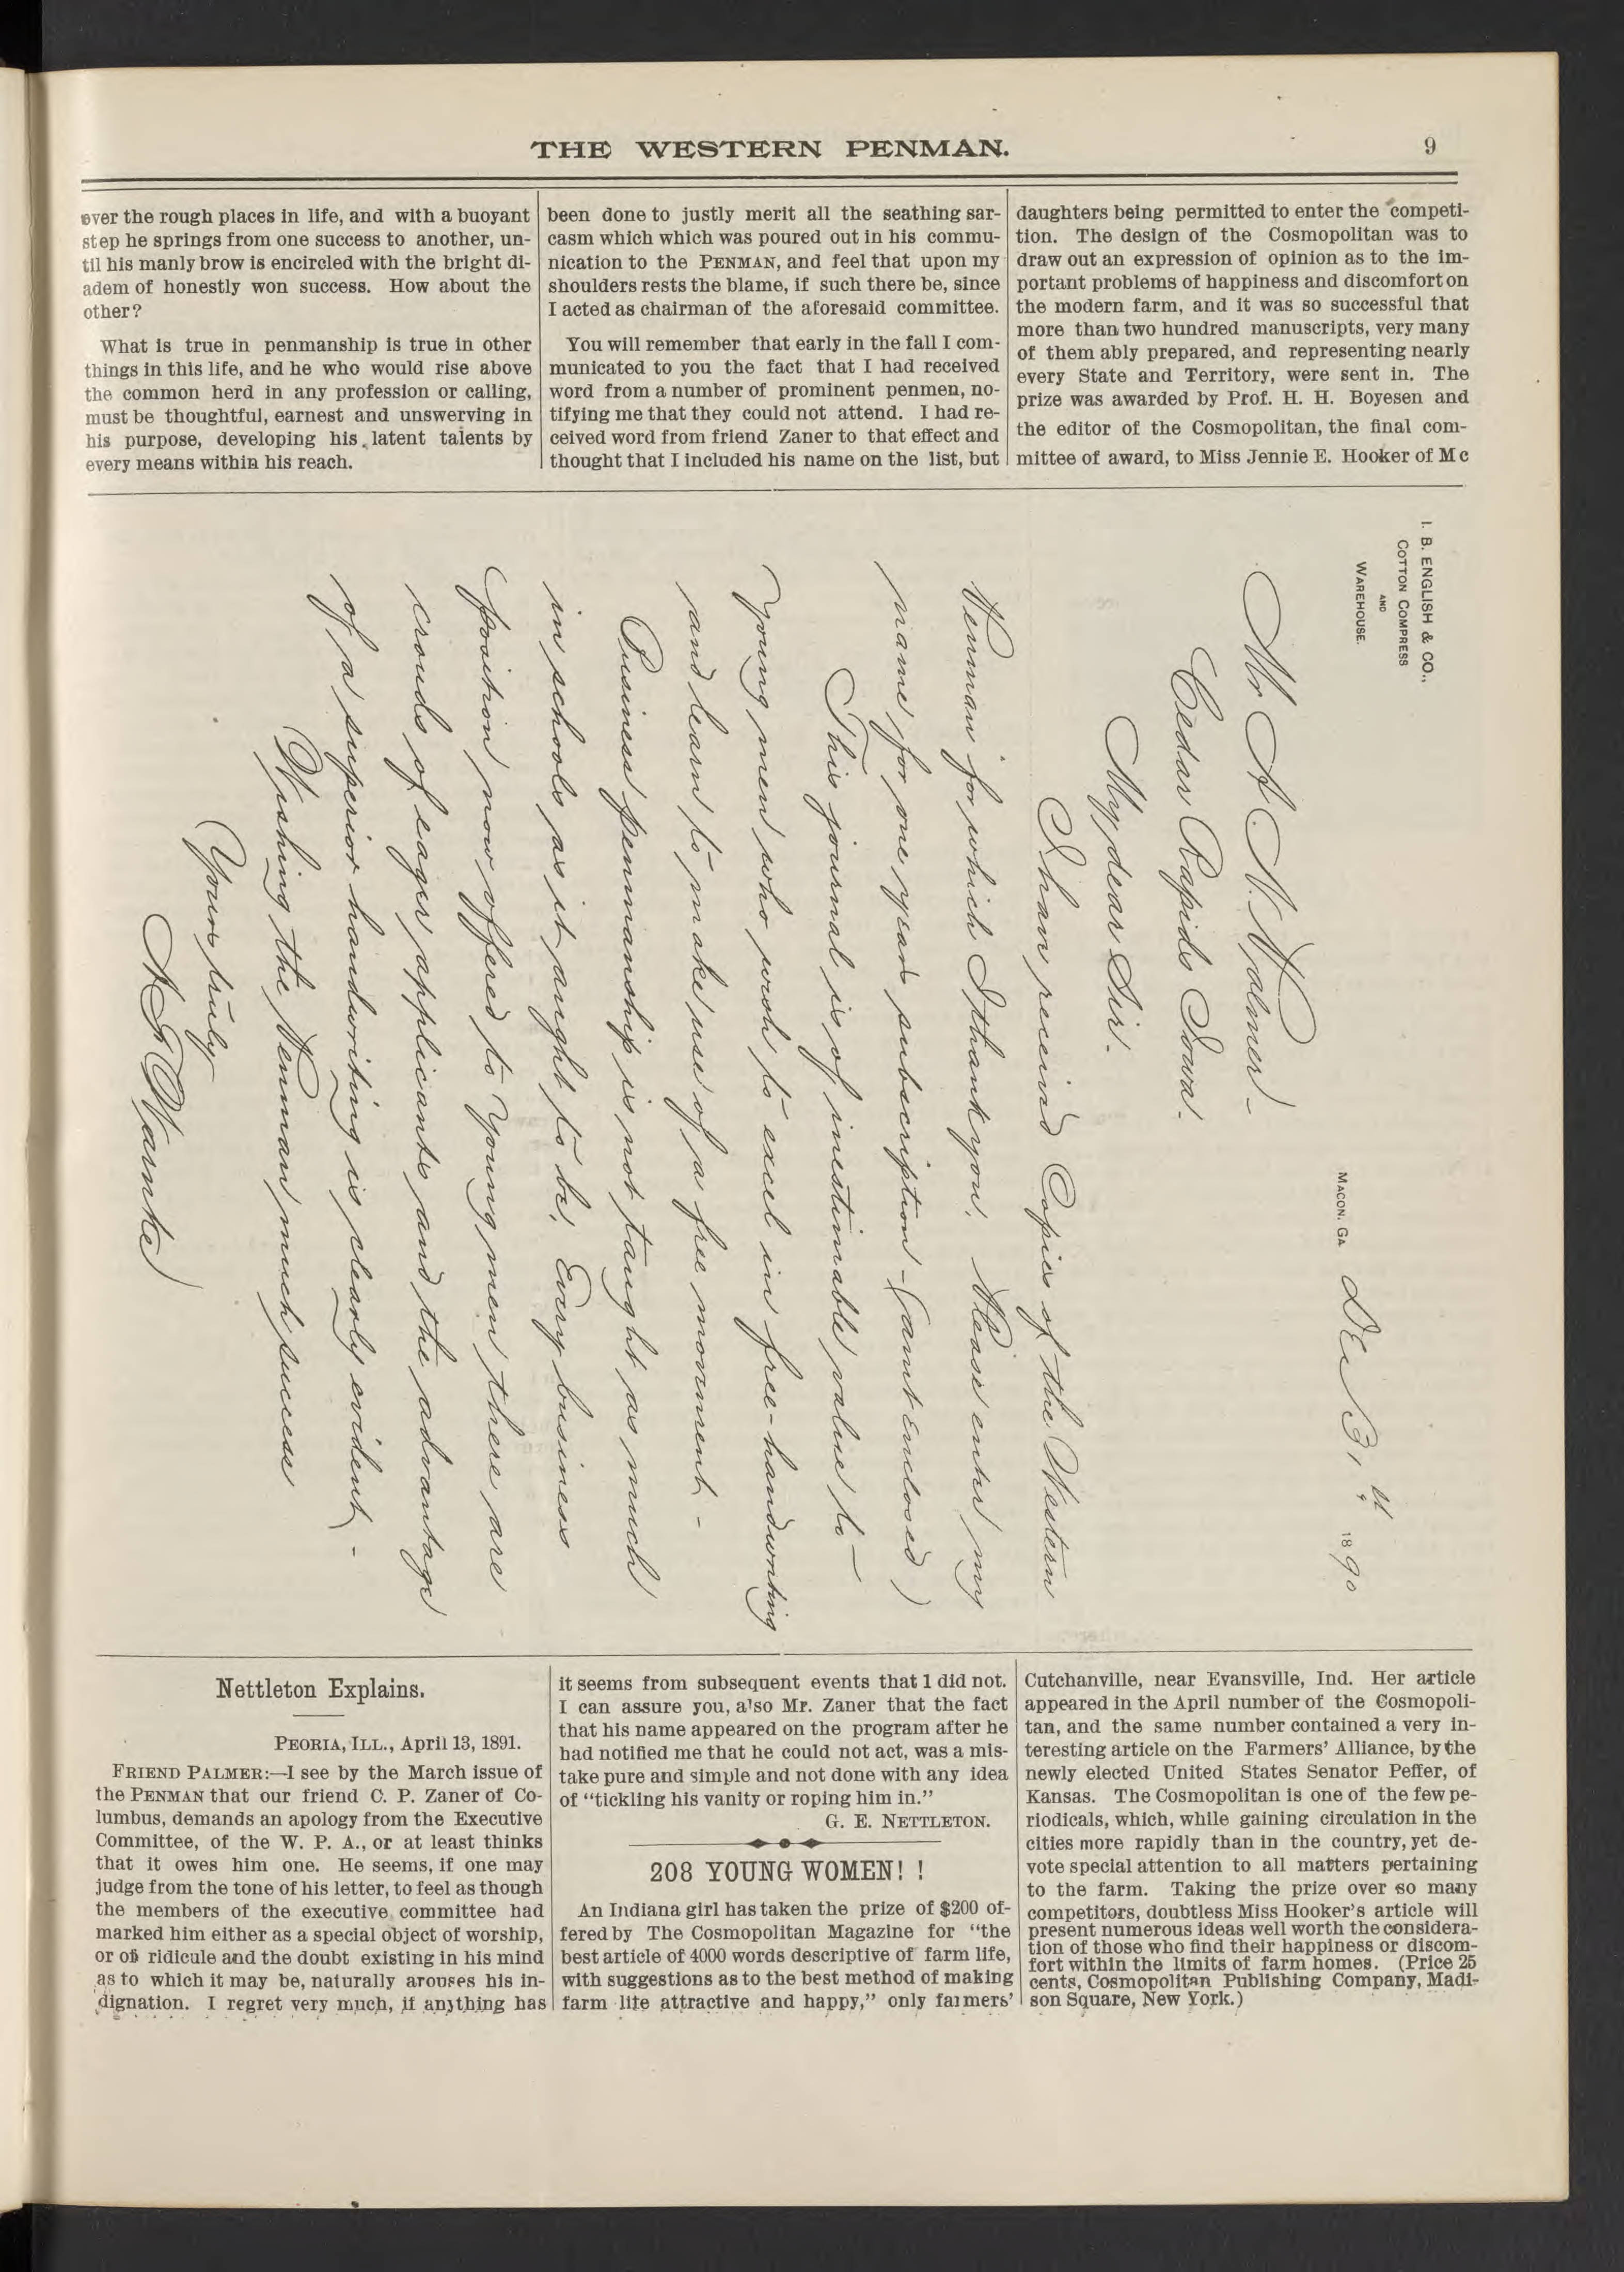 THE WESTERN PENMAN.
9
over the rough places in life, and with a buoyant
step he springs from one success to another, un-
til his manly brow is encircled with the bright di-
adem of honestly won success. How about the
other?
What is true in penmanship is true in other
things in this life, and he who would rise above
the common herd in any profession or calling,
must be thoughtful, earnest and unswerving in
his purpose, developing his latent talents by
every means within his reach.
been done to justly merit all the seathing sar-
casm which which was poured out in his commu-
nication to the PENMAN, and feel that upon my
shoulders rests the blame, if such there be, since
I acted as chairman of the aforesaid committee.
You will remember that early in the fall I com-
municated to you the fact that I had received
word from a number of prominent penmen, no-
tifying me that they could not attend. I had re-
ceived word from friend Zaner to that effect and
thought that I included his name on the list, but
daughters being permitted to enter the competi-
tion. The design of the Cosmopolitan was to
draw out an expression of opinion as to the im-
portant problems of happiness and discomfort on
the modern farm, and it was so successful that
more than two hundred manuscripts, very many
of them ably prepared, and representing nearly
every State and Territory, were sent in. The
prize was awarded by Prof. H. H. Boyesen and
the editor of the Cosmopolitan, the final com-
mittee of award, to Miss Jennie E. Hooker of Mc
I. B. ENGLISH & CO.,
COTTON COMPRESS
AND
WAREHOUSE.
MACON, GA Dec 31st 1890
Mr A. N. Palmer-
Cedar Rapids Iowa.
My dear Sir.
I have received Copies of the Western
Penman for which I thank you. Please enter my
name for one years subscription - (amt enclosed)
This journal is of inestimable value to-
young men who wish to excel in free-handwriting
and learn to make use of a free movement-
Business penmanship is not taught as much
in schools as it aught to be. Every business
position now offered to young men there are
crouds of eager applicants and the advantage
of a superior handwriting is clearly evident-
Wishing the Penman much success
Yours truly
Nettleton Explains.
PEORIA, ILL., April 13, 1891.
FRIEND PALMER:—I see by the March issue of
the PENMAN that our friend C. P. Zaner of Co-
lumbus, demands an apology from the Executive
Committee, of the W. P. A., or at least thinks
that it owes him one. He seems, if one may
judge from the tone of his letter, to feel as though
the members of the executive committee had
marked him either as a special object of worship,
or of ridicule and the doubt existing in his mind
as to which it may be, naturally arouses his in-
dignation. I regret very much, if anything has
it seems from subsequent events that I did not.
I can assure you, also Mr. Zaner that the fact
that his name appeared on the program after he
had notified me that he could not act, was a mis-
take pure and simple and not done with any idea
of “tickling his vanity or roping him in.”
G. E. NETTLETON.
208 YOUNG WOMEN! !
An Indiana girl has taken the prize of $200 of-
fered by The Cosmopolitan Magazine for “the
best article of 4000 words descriptive of farm life,
with suggestions as to the best method of making
farm life attractive and happy,” only farmers’
Cutchanville, near Evansville, Ind. Her article
appeared in the April number of the Cosmopoli-
tan, and the same number contained a very in-
teresting article on the Farmers’ Alliance, by the
newly elected United States Senator Peffer, of
Kansas. The Cosmopolitan is one of the few pe-
riodicals, which, while gaining circulation in the
cities more rapidly than in the country, yet de-
vote special attention to all matters pertaining
to the farm. Taking the prize over so many
competitors, doubtless Miss Hooker’s article will
present numerous ideas well worth the considera-
tion of those who find their happiness or discom-
fort within the limits of farm homes. (Price 25
cents, Cosmopolitan Publishing Company, Madi-
son Square, New York.)